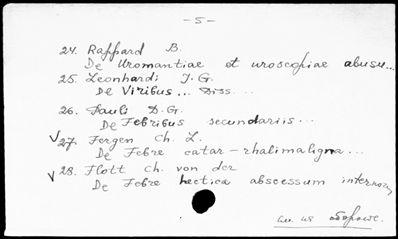 -5-
24. Rappard B.
De Uromantiae et uroscopiae abusu...
25. Leonhardi J. G.
De Viribus... Diss...
26. Pauli D. G.
De Febribus secundariis...
√27. Fergen Ch. L.
De Febre catar-rhalimaligna...
√28. Flott Ch. von der
De Febre hectica abscessum internorum
см. на обороте.